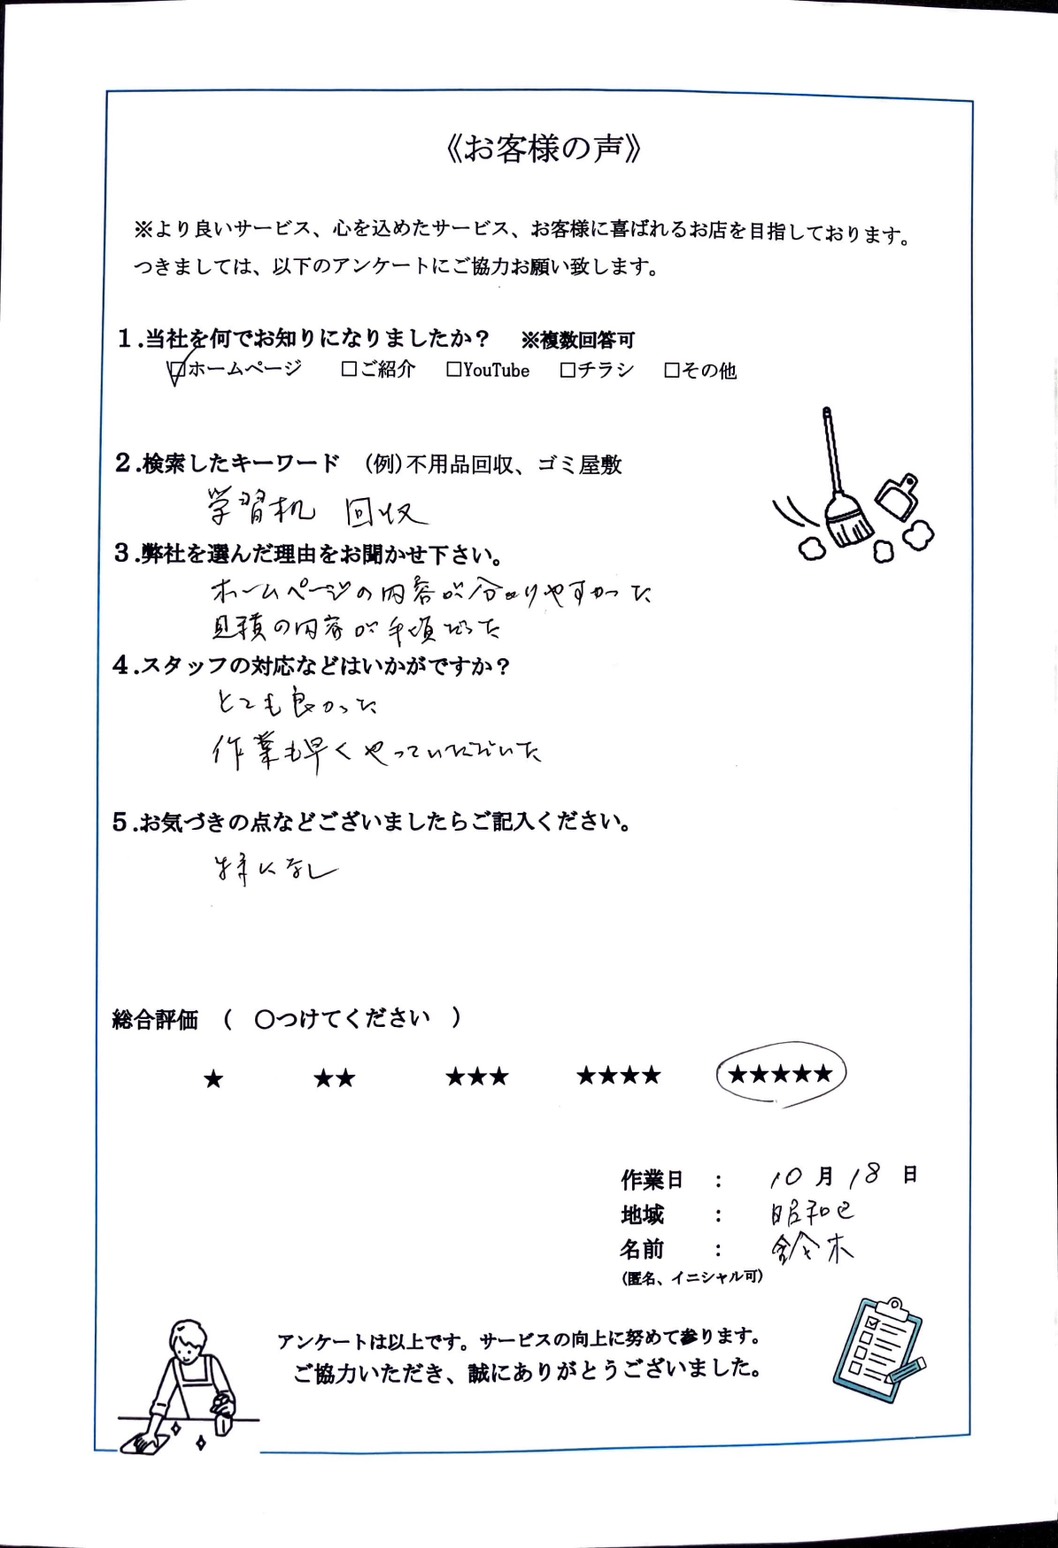 《お客様の声》
※より良いサービス、心を込めたサービス、お客様に喜ばれるお店を目指しております。
つきましては、以下のアンケートにご協力お願い致します。
１.当社を何でお知りになりましたか？　※複数回答可
☑ホームページ　□ご紹介　□YouTube　□チラシ　□その他
２.検索したキーワード　(例)不用品回収、ゴミ屋敷
学習机　回収
３.弊社を選んだ理由をお聞かせ下さい。
ホームページの内容が分かりやすかった
見積の内容が手頃だった
４.スタッフの対応などはいかがですか？
とても良かった
作業も早くやっていただいた
５.お気づきの点などございましたらご記入ください。
特になし
総合評価　（　〇つけてください　）
★　★★　★★★　★★★★　★★★★★
作業日　：　10月18日
地域　：　昭和区
名前　：　鈴木
(匿名、イニシャル可)
アンケートは以上です。サービスの向上に努めて参ります。
ご協力いただき、誠にありがとうございました。